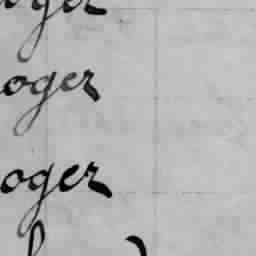 oger
oger
oger